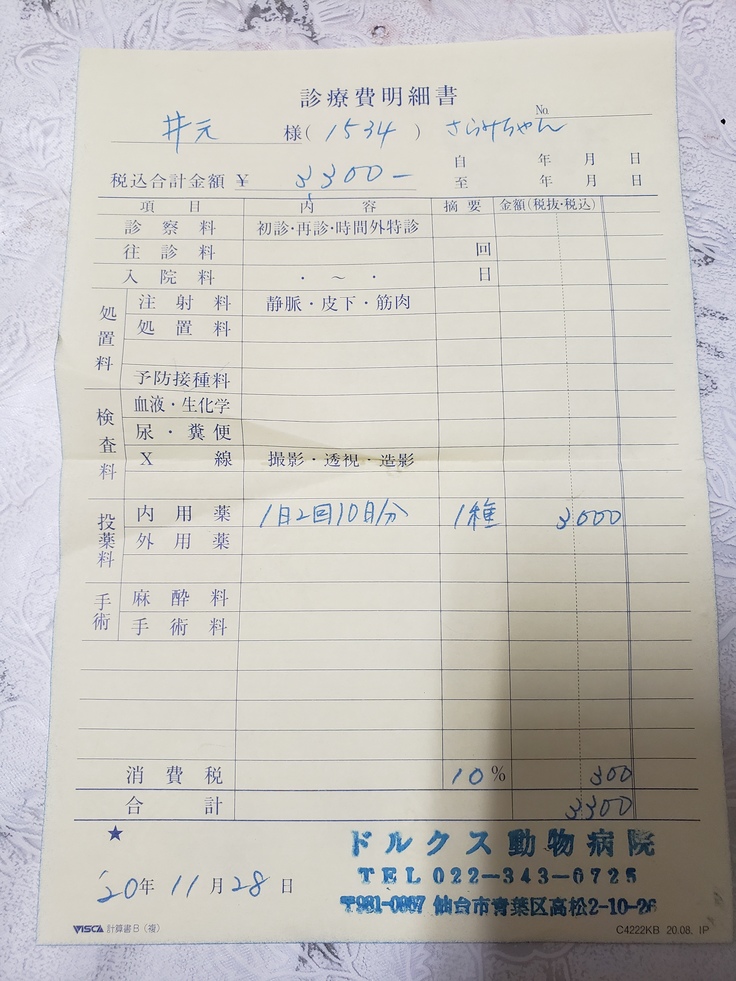 診療費明細書
No
井元 様(1534) さらみちゃん
自 年 月 日
税込合計金額 ¥ 3300-
至 年 月 日
項目 内容 摘要 金額(税抜・税込)
診察料 初診・再診・時間外特診
往診料 回
入院料 ・ ~ ・ 日
処置料
注射料 静脈・皮下・筋肉
処置料
予防接種料
検査料
血液・生化学
尿・糞便
X線 撮影・透視・造影
投薬料
内用薬 1日2回10日分 1種 3000
外用薬
手術
麻酔料
手術料
消費税 10% 300
合計 3300
★
ドルクス動物病院
TEL 022-343-0725
'20年 11月28日
〒981-0907 仙台市青葉区高松2-10-26
VISCA 計算書B(複)
C4222KB 20.08. IP